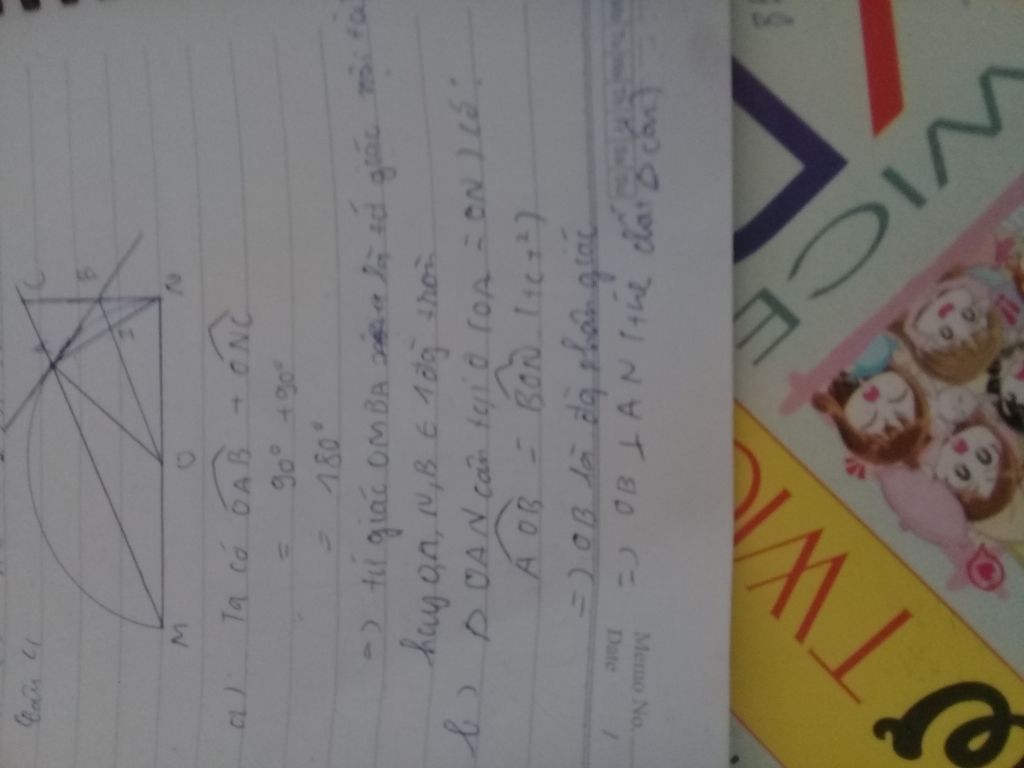 Câu 4
M
O
N
I
B
C
a). Ta có OAB + ONC
= 90° + 90°
= 180°
=) tứ giác OMBA là tứ giác nội
hay O,A,N,B ∈ 1 đg tròn
b) Δ OAN cân tại O (OA = ON) có:
AOB = BON (t/c t²)
=) OB là đg phân giác
=) OB ⊥ AN (t/c Δ cân)
Memo No.
Date /
TWICE